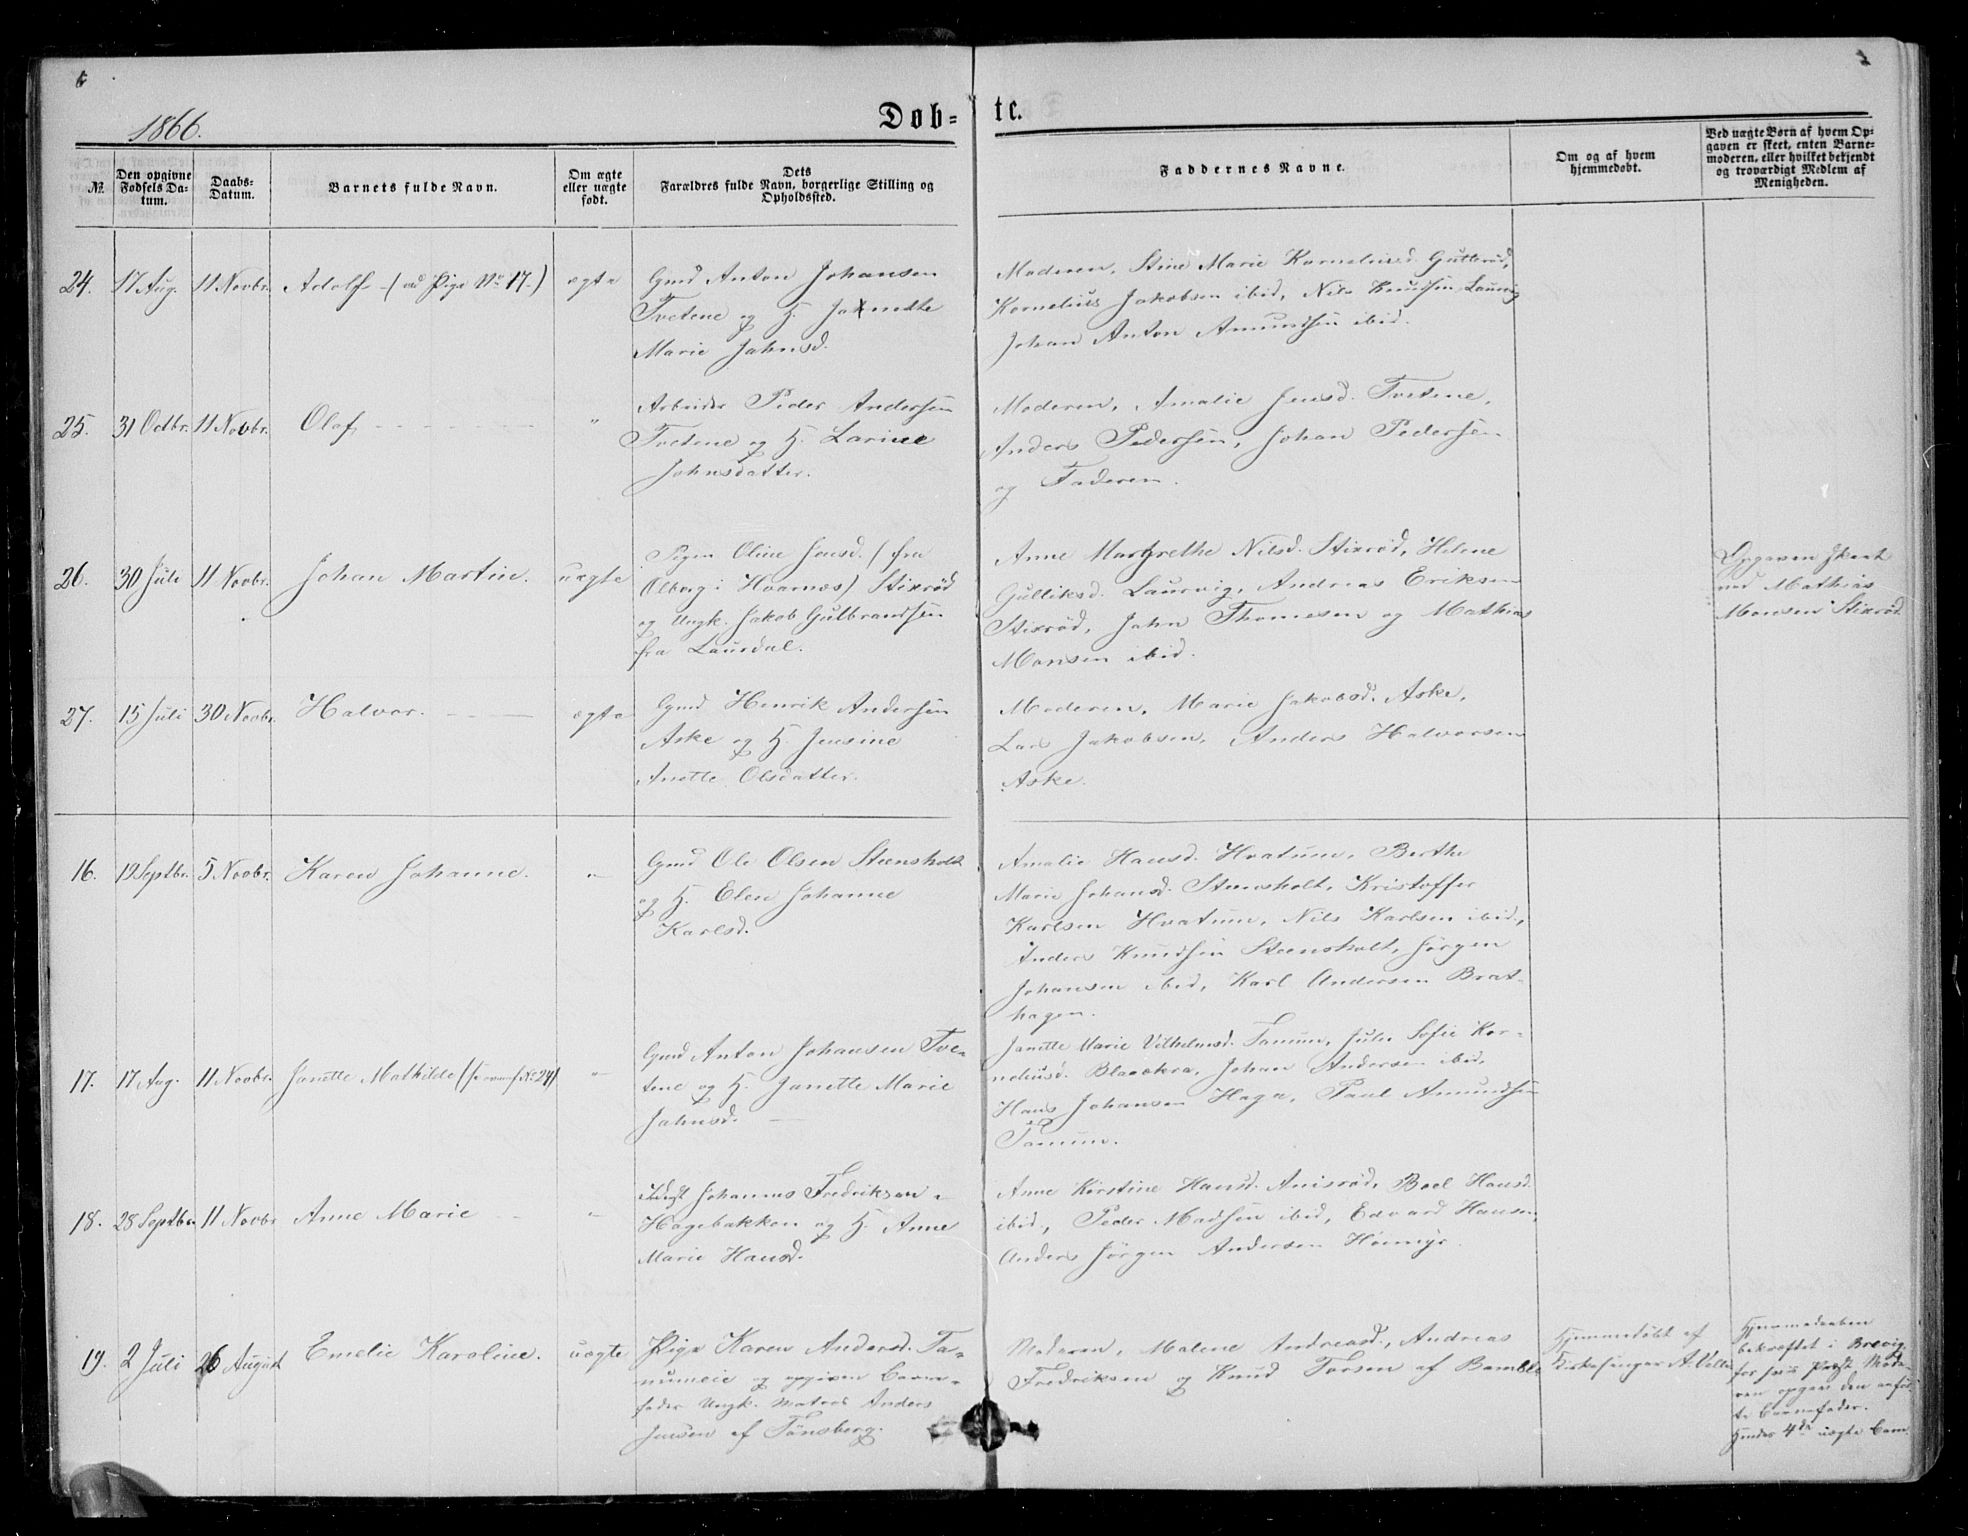 1866.
Døb=
te.
№
Den opgivne Fødsels Datum.
Daabs-Datum.
Barnets fulde Navn.
Om ægte eller uægte født.
Dets Forældres fulde Navn, borgerlige Stilling og Opholdssted.
Faddernes Navne.
Om og af hvem hjemmedøbt.
Ved uægte Børn af hvem Opgaven er skeet, enten Barnemoderen, eller hvilket bekjendt og troværdigt Medlem af Menigheden.
24. 17 Aug. 11 Novbr. Adolf - (cd Pige No 17.) ægte
Gmd Anton Johansen
Tvetene og H. Janette
Marie Jahnsd.
Moderen, Stine Marie Korneliusd. Gutterød,
Kornelius Jakobsen ibid, Nils Knudsen Laurvig
Johan Anton Amundsen ibid.
25. 31 Octbr. 11 Novbr. Olaf "
Arbeider Peder Andersen
Tvetene og H. Larine
Johnsdatter.
Moderen, Amalie Jensd. Tvetene,
Anders Pedersen, Johan Pedersen
og Faderen.
26. 30 Juli 11 Novbr. Johan Martin. uægte
Pigen Oline Jensd. (fra
Ølberg i Hvarnæs) Stixrød
og Ungk. Jakob Gulbrandsen
fra Laurdal.
Anne Margrethe Nilsd. Stixrød, Helene
Gulliksd. Laurvig, Andreas Eriksen
Stixrød, John Thomesen og Mathias
Monsen ibid.
Opgaven skeet
ved Mathias
Monsen Stixrød
27. 15 Juli 30 Novbr. Halvor. ægte
Gmd Henrik Andersen
Aske og H. Jensine
Anette Olsdatter.
Moderen, Marie Jakobsd. Aske,
Lars Jakobsen, Anders Halvorsen
Aske.
16. 19 Septbr. 5 Novbr. Karen Johanne. "
Gmd Ole Olsen Steensholt
og H. Elen Johanne
Karlsd.
Amalie Hansd. Hvatum, Berthe
Marie Johansd. Steensholt, Kristoffer
Karlsen Hvatum, Nils Karlsen ibid,
Anders Knudsen Steensholt, Jørgen
Johansen ibid, Karl Andersen Brat-
hagen.
17. 17 Aug. 11 Novbr. Janette Mathilde (se ovenf. No 24) "
Gmd Anton Johansen Tve-
tene og H. Janette Marie
Jahnsd.
Janette Marie Vilhelmsd. Tanum, Julie Sofie Kor-
neliusd. Blaaokra, Johan Andersen ibid,
Hans Johansen Haga, Paul Amundsen
Tanum.
18. 28 Septbr. 11 Novbr. Anne Marie "
Johannes Fredriksen
Hagebakken og H. Anne
Marie Hansd.
Anne Kirstine Hansd. Anisrød, Boel Hansd.
ibid, Peder Madsen ibid, Edvard Hansen,
Anders Jørgen Andersen
19. 2 Juli 26 August Emelie Karoline. uægte
Pige Karen Andersd. Ta-
numeie og opgiven Barne-
fader Ungk. Matros Anders
Jensen af Tønsberg.
Moderen, Malene Andreasd., Andreas
Fredriksen og Knud Torsen af Bamble
Hjemmedøbt af
Kirkesanger A. Velle
Hjemmedaaben
bekræftet i Brevig
for sin Præst Mode-
ren opgav den anfør-
te Barnefader.
Hendes 4de uægte Barn.